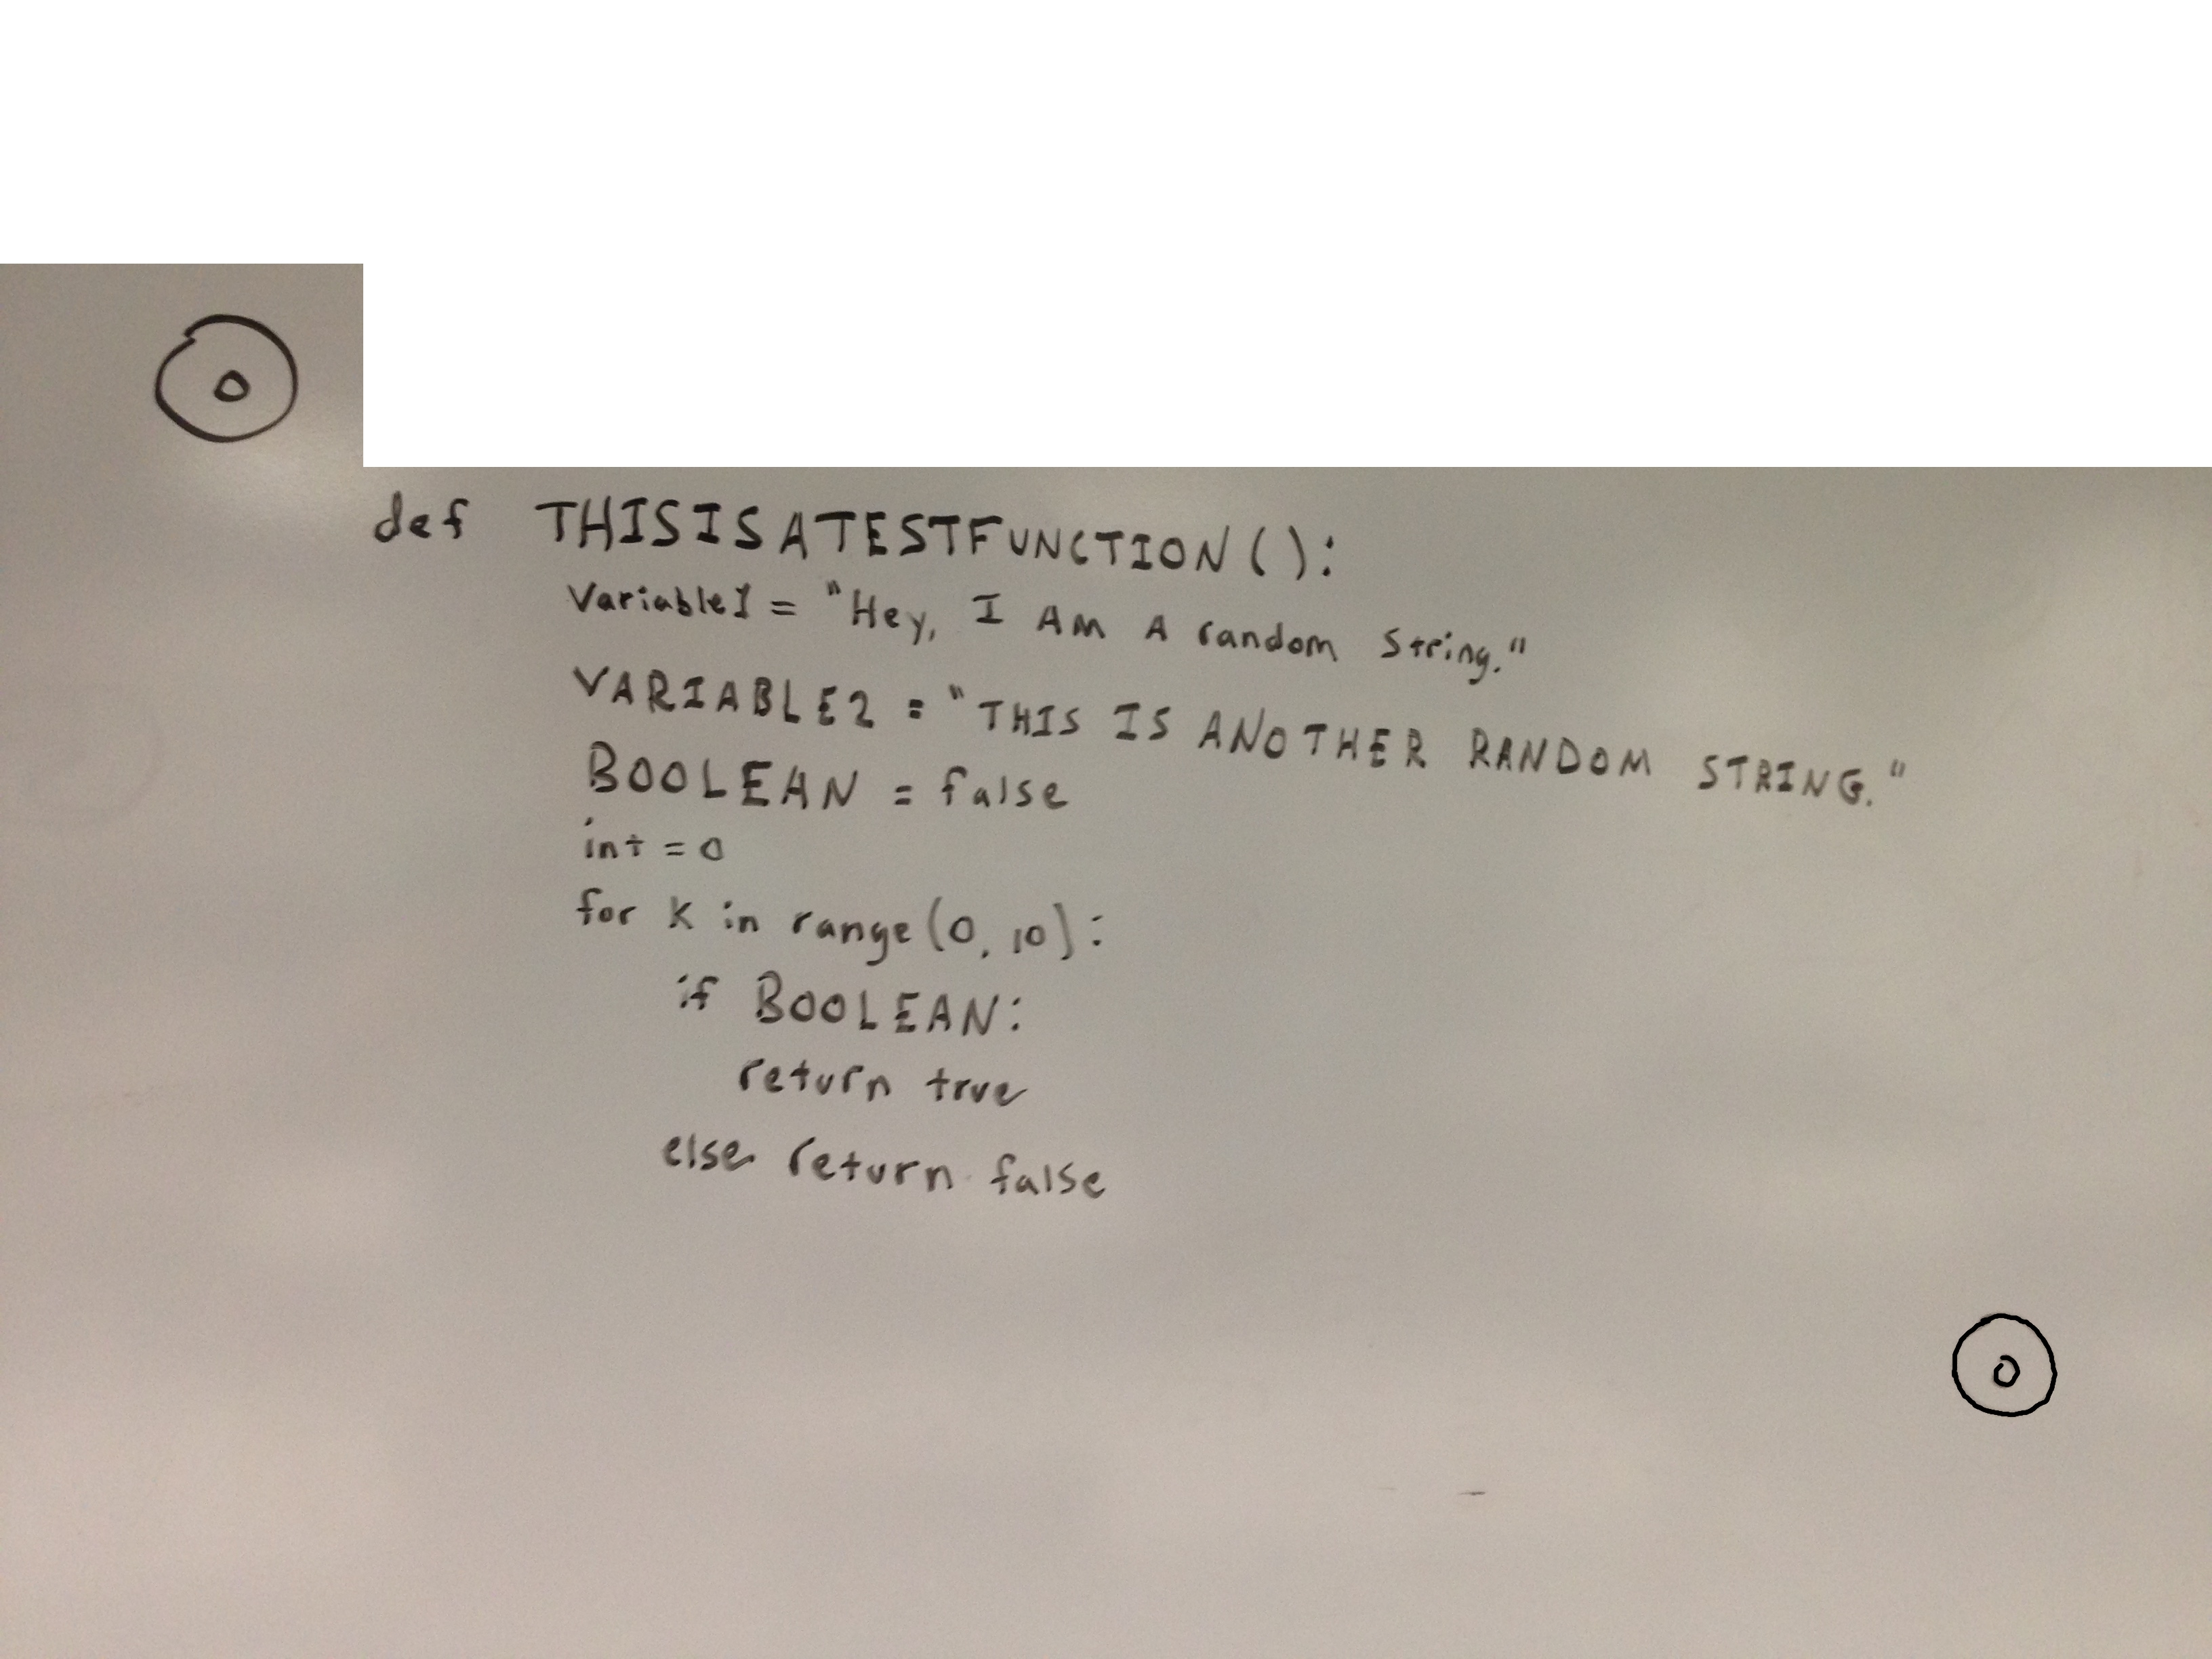 def THISISATESTFUNCTION():
Variable1 = "Hey, I AM A random String."
VARIABLE2 = "THIS IS ANOTHER RANDOM STRING."
BOOLEAN = false
int = 0
for k in range(0, 10):
if BOOLEAN:
return true
else return false